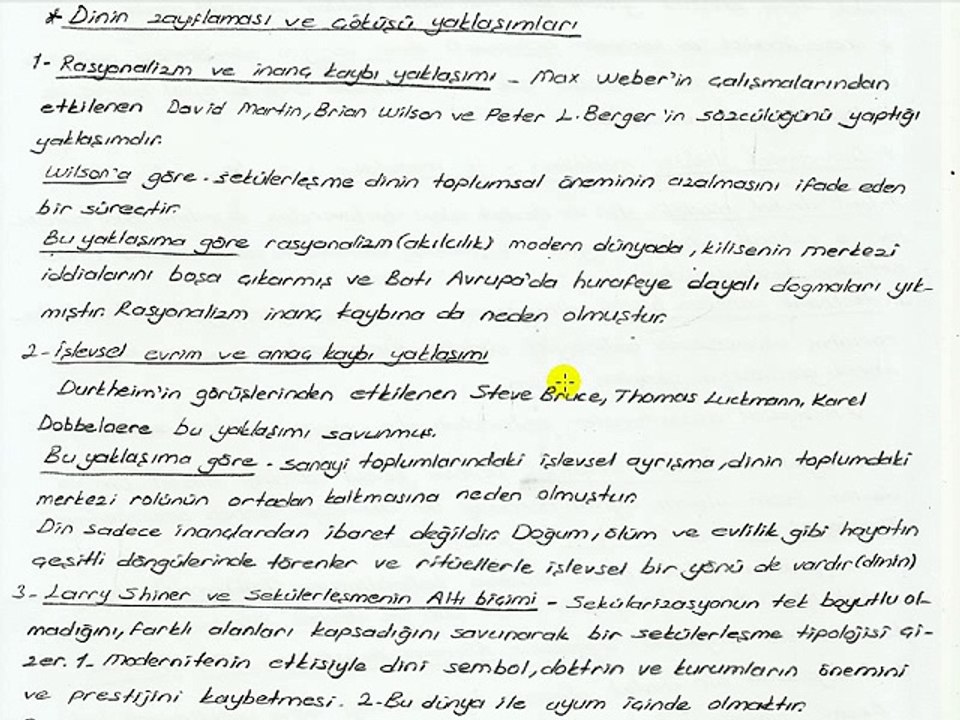 * Dinin zayıflaması ve çöküşü yaklaşımları
1- Rasyonalizm ve inanç kaybı yaklaşımı - Max Weber'in çalışmalarından
etkilenen David Martin, Brian Wilson ve Peter L. Berger'in sözcülüğünü yaptığı
yaklaşımdır.
Wilson'a göre - sekülerleşme dinin toplumsal öneminin azalmasını ifade eden
bir süreçtir.
Bu yaklaşıma göre rasyonalizm (akılcılık) modern dünyada, kilisenin merkezi
iddialarını boşa çıkarmış ve Batı Avrupa'da hurafeye dayalı dogmaları yık-
mıştır. Rasyonalizm inanç kaybına da neden olmuştur.
2- İşlevsel evrim ve amaç kaybı yaklaşımı
Durkheim'in görüşlerinden etkilenen Steve Bruce, Thomas Luckmann, Karel
Dobbelaere bu yaklaşımı savunmuş.
Bu yaklaşıma göre - sanayi toplumlarındaki işlevsel ayrışma, dinin toplumdaki
merkezi rolünün ortadan kalkmasına neden olmuştur.
Din sadece inançlardan ibaret değildir. Doğum, ölüm ve evlilik gibi hayatın
çeşitli döngülerinde törenler ve ritüellerle işlevsel bir yönü de vardır (dinin)
3- Larry Shiner ve Sekülerleşmenin Altı biçimi - Sekülarizasyonun tek boyutlu ol-
madığını, farklı alanları kapsadığını savunarak bir sekülerleşme tipolojisi çi-
zer. 1- Modernitenin etkisiyle dini sembol, doktrin ve kurumların önemini
ve prestijini kaybetmesi. 2- Bu dünya ile uyum içinde olmaktır.